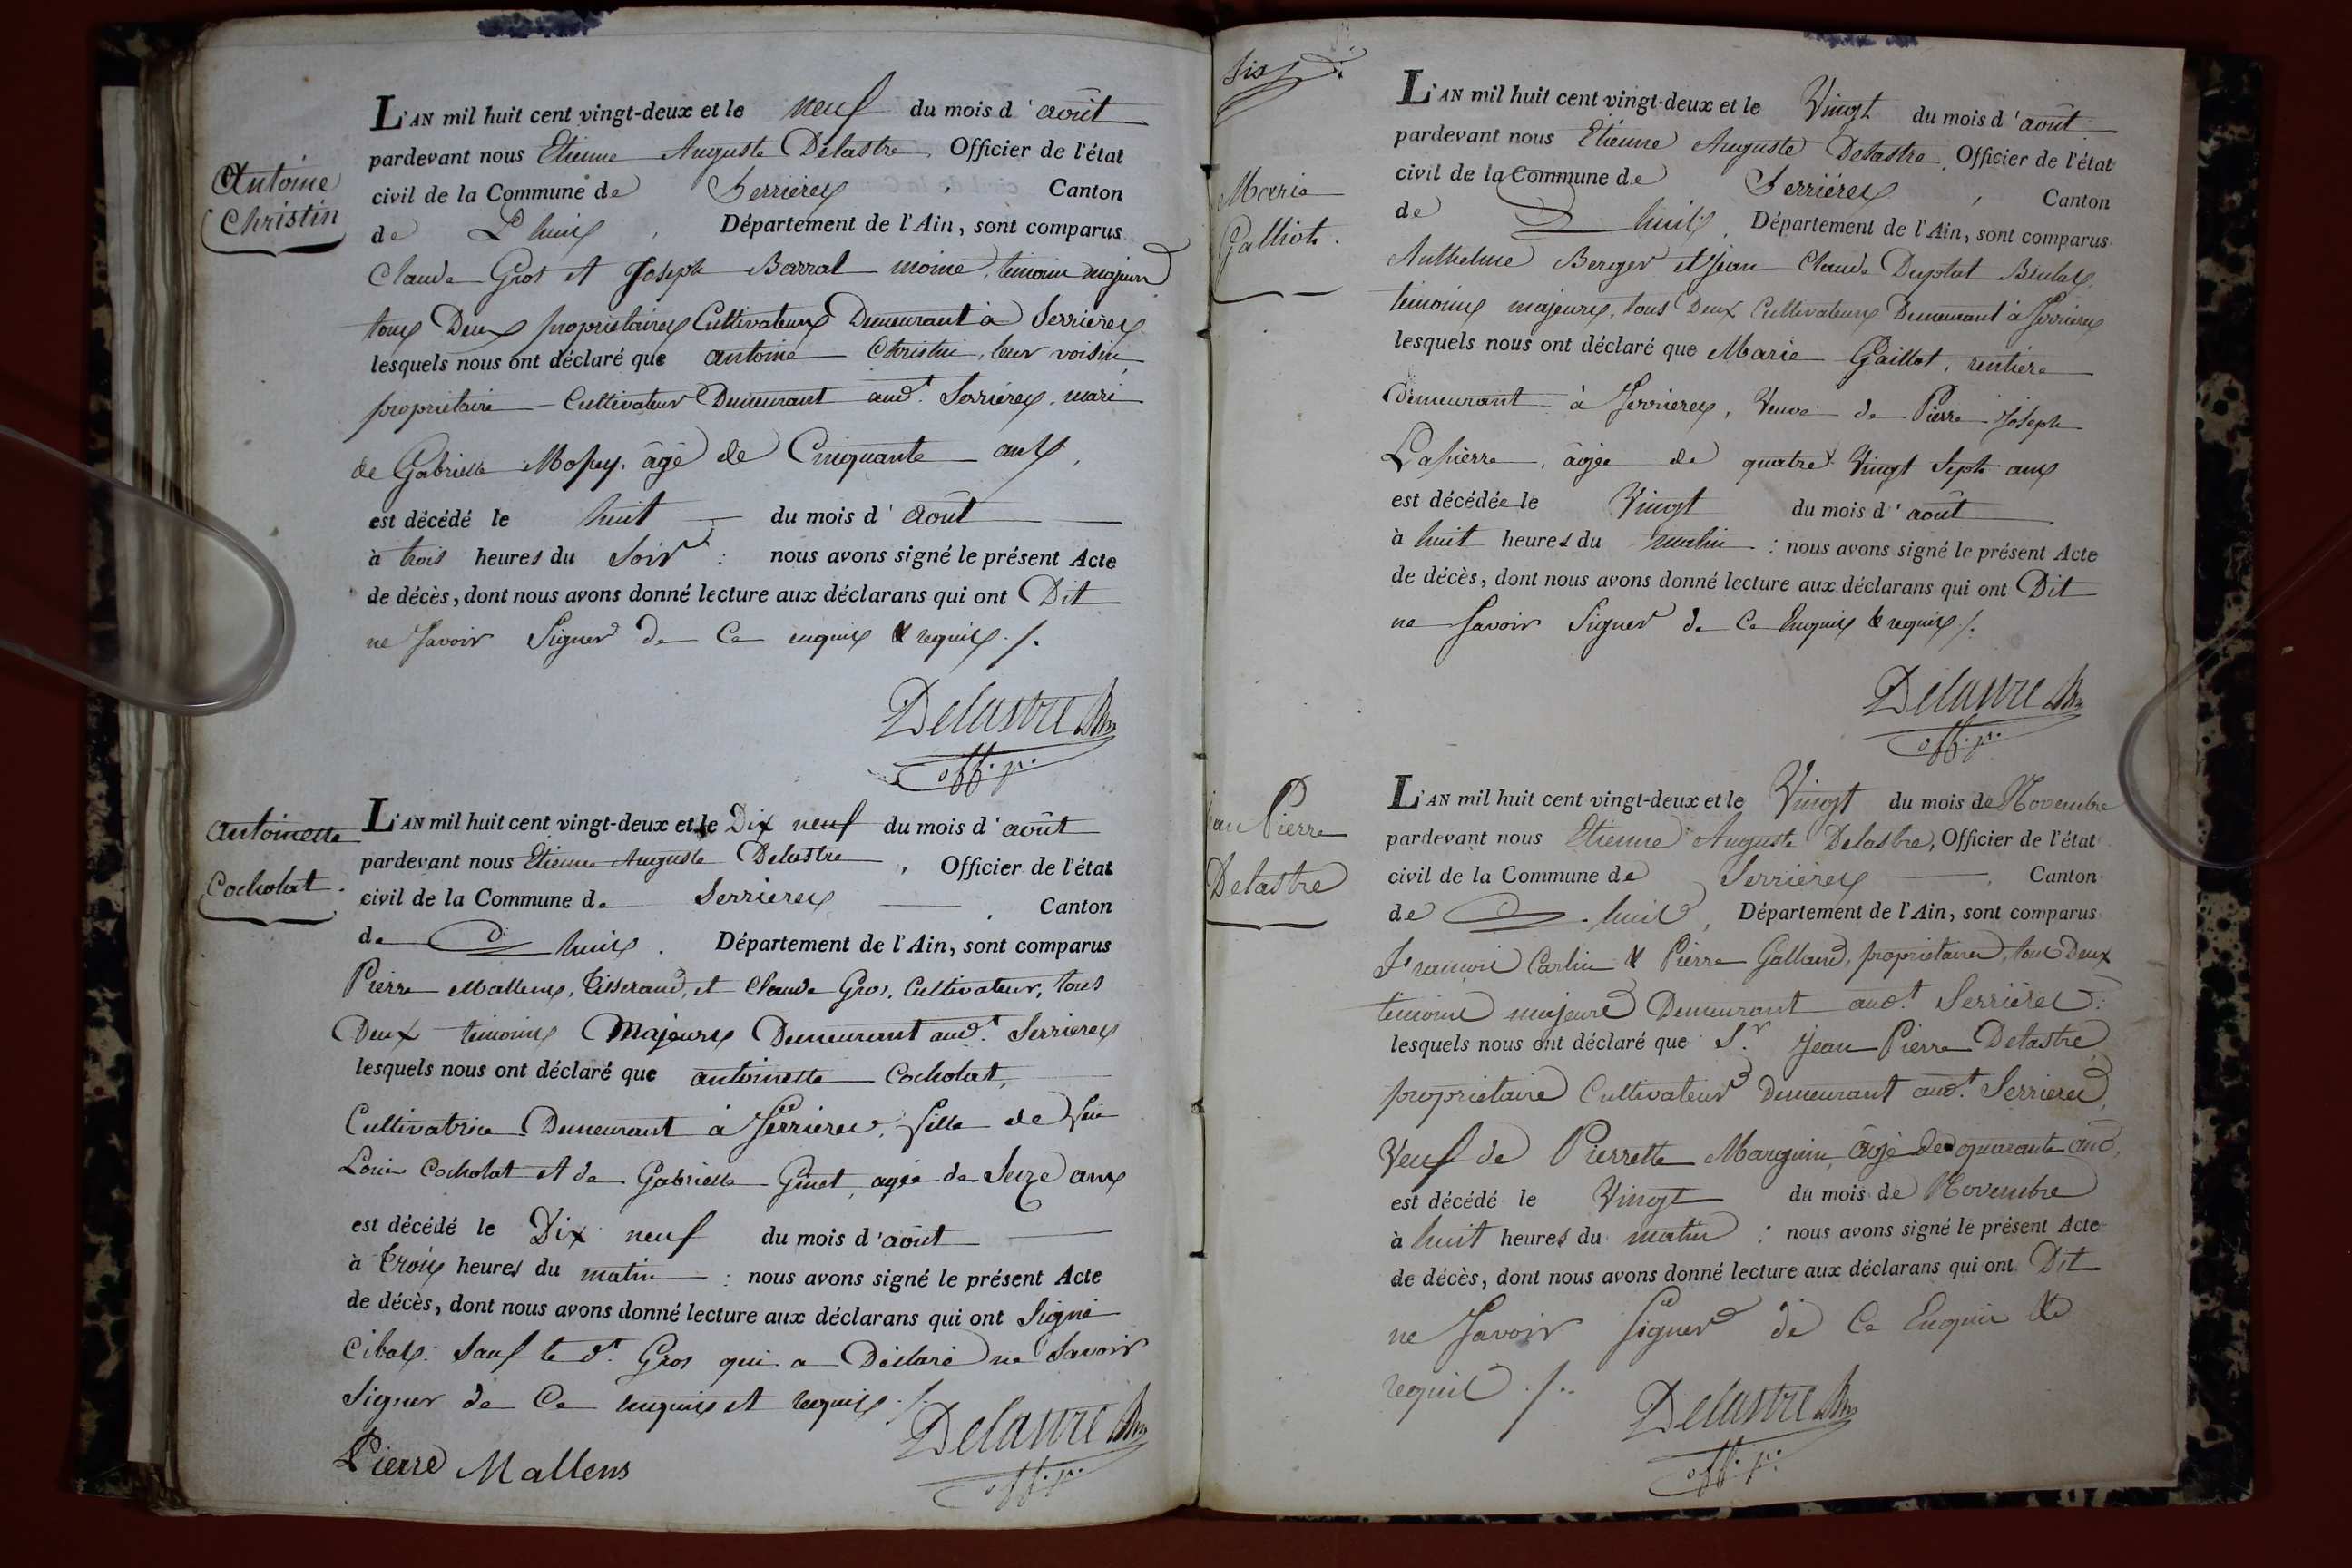 Antoine
Christin
L'AN mil huit cent vingt-deux et le neuf du mois d'août
pardevant nous Etienne Auguste Delastre, Officier de l'état
civil de la Commune de Serrieres, Canton
de Lhuis, Département de l'Ain, sont comparus
Claude Gros et Joseph Barral moine, temoins majeurs
tous Deux propriétaires Cultivateurs Demeurant à Serrieres
lesquels nous ont déclaré que antoine Christin, leur voisin,
propriétaire Cultivateur Demeurant aud.t Serriéres, mari
de Gabrielle âgé de Cinquante ans,
est décédé le huit du mois d'août
à trois heures du Soir : nous avons signé le présent Acte
de décès, dont nous avons donné lecture aux déclarans qui ont Dit
ne Savoir Signer de Ce enquis & requis ./.
Delastre
off. p.
Antoinette
Cocholat.
L'AN mil huit cent vingt-deux et le Dix neuf du mois d'août
pardevant nous Etienne Auguste Delastre, Officier de l'état
civil de la Commune de Serrieres, Canton
de Lhuis. Département de l'Ain, sont comparus
Pierre Mallens, Tisserand, et Claude Gros, Cultivateur, tous
Deux temoins Majeurs Demeurant aud.t Serrieres
lesquels nous ont déclaré que antoinette Cocholat,
Cultivatrice Demeurant à Serrieres, fille de feu
Louis Cocholat et de Gabrielle Ginet, agée de Seize ans
est décédé le Dix neuf du mois d'août
à trois heures du matin : nous avons signé le présent Acte
de décès, dont nous avons donné lecture aux déclarans qui ont Signé
Cibas. Sauf le d.t Gros qui a Déclaré ne Savoir
Signer de Ce enquis et requis ./.
Delastre
off. p.
Pierre Mallens
Six
Marie
Galliot.
L'AN mil huit cent vingt-deux et le Vingt du mois d'août
pardevant nous Etienne Auguste Delastre, Officier de l'état
civil de la Commune de Serriéres, Canton
de Lhuis, Département de l'Ain, sont comparus
Anthelme Berger et Jean Claude Duplat
témoins majeurs, tous Deux Cultivateurs Demeurant à Serrieres
lesquels nous ont déclaré que Marie Gaillot, rentiere
Demeurant à Serrieres, Veuve de Pierre Joseph
Lapierre, âgée de quatre Vingt Sept ans
est décédée le Vingt du mois d'août
à huit heures du matin : nous avons signé le présent Acte
de décès, dont nous avons donné lecture aux déclarans qui ont Dit
ne Savoir Signer de Ce Enquis & requis ./.
Delastre
off. p.
Jean Pierre
Delastre
L'AN mil huit cent vingt-deux et le Vingt du mois de Novembre
pardevant nous Etienne Auguste Delastre, Officier de l'état
civil de la Commune de Serriéres, Canton
de Lhuis, Département de l'Ain, sont comparus
François Carlin & Pierre Galland, propriétaires, tous Deux
temoins majeurs Demeurant aud.t Serriéres :
lesquels nous ont déclaré que S.r Jean Pierre Delastre,
propriétaire Cultivateur Demeurant aud.t Serrieres,
Veuf de Pierrette Marguin, âgé de quarante ans,
est décédé le Vingt du mois de Novembre
à huit heures du matin : nous avons signé le présent Acte
de décès, dont nous avons donné lecture aux déclarans qui ont Dit
ne Savoir Signer de Ce Enquis &
requis ./.
Delastre
off. p.